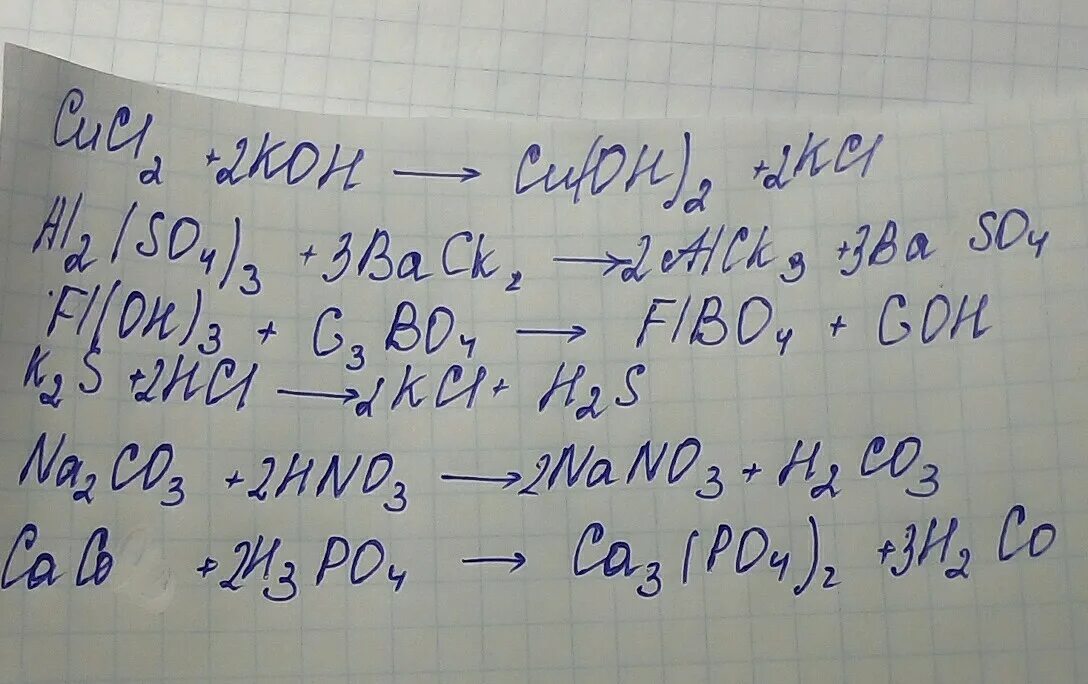 CuCl₂ +2KOH → Cu(OH)₂ +2KCl
Al₂(SO₄)₃ +3BaCk₂ → 2AlCk₃ +3Ba SO₄
Fl(OH)₃ + C₃BO₄ → FlBO₄ + COH
K₂S +2HCl → 2KCl + H₂S
Na₂CO₃ +2HNO₃ → 2NaNO₃ + H₂CO₃
CaCo +2H₃PO₄ → Ca₃(PO₄)₂ +3H₂Co